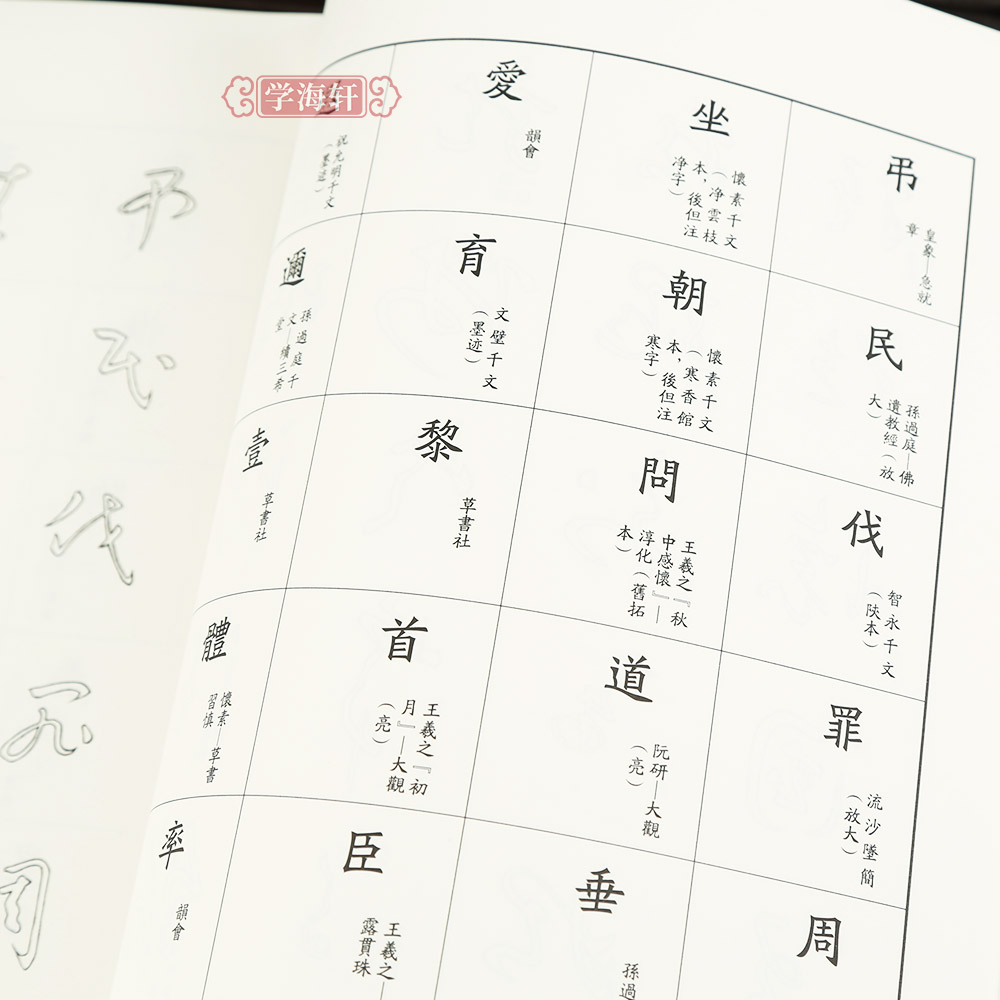 学海轩
弔
皇象——急就
章
民
孫過庭——佛
遺教經（放
大）
伐
智永千文
（陝本）
罪
流沙墜簡
（放大）
周
坐
懷素千文
（淨雲枝
本，後但注
淨字）
朝
懷素千文
（寒香館
本，後但注
寒字）
問
王羲之『秋
中感懷』——
淳化（舊拓
本）
道
阮研——大觀
（亮）
垂
孫過
愛
韻會
育
文壁千文
（墨迹）
黎
草書社
首
王羲之『初
月』——大觀
（亮）
臣
王羲之——
露貫珠
祝允明千文
（墨迹）
邇
孫過庭千
文——續三希
堂
壹
草書社
體
懷素——草書
習慎
率
韻會
弔
民
伐
罪
周